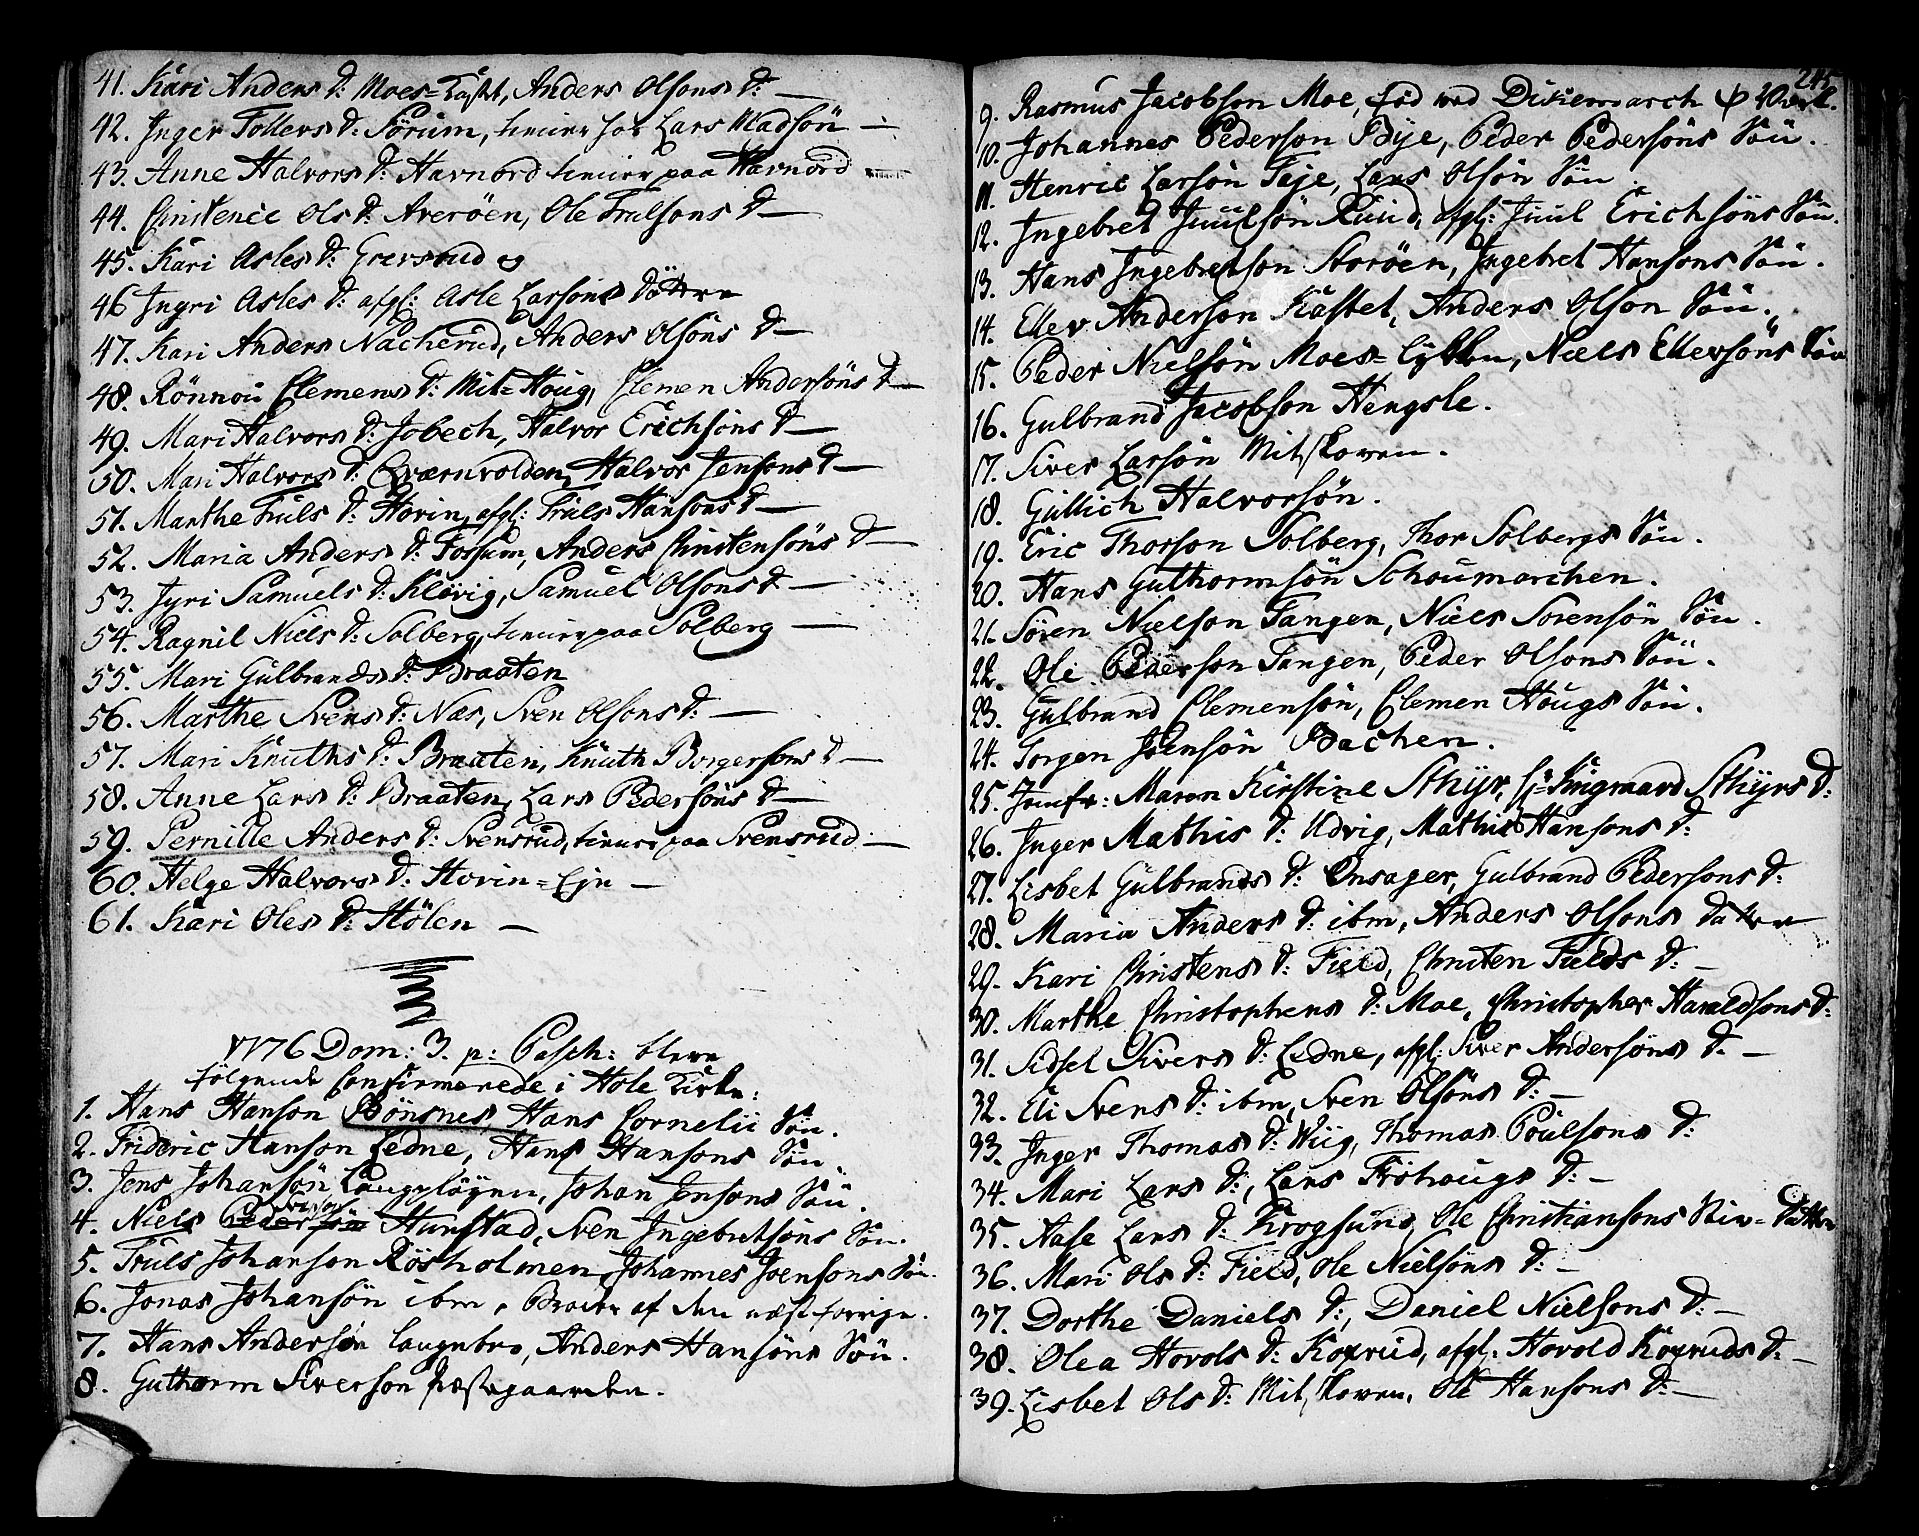 41. Kari Anders D: Moes=Kastet, Anders Olsons D: —
42. Inger Tollers D: Sörum, tiener hos Lars Madsön —
43. Anne Halvors D: Havnord tiener paa Havnord —
44. Christence Ols D: Averöen, Ole Trulsons D —
45. Kari Asles D: Grevsrud og
46 Ingri Asles D: afgl: Asle Larsons Döttre
47. Kari Anders Nacherud, Anders Olsöns D —
48. Rönnou Clemens D: Mit=Houg, Clemen Andersöns D —
49. Mari Halvors D: Jobech, Halvor Erichsöns D —
50. Mari Halvors D: Qværnvolden, Halvor Jensons D —
51. Marthe Truls D: Hovin, afgl: Truls Hansons D —
52. Maria Anders D: Fossum, Anders Christensöns D —
53. Jyri Samuels D: Klövig, Samuel Olsons D —
54. Ragnil Niels D: Solberg, tiener paa Solberg —
55. Mari Gulbrands D: Braaten
56. Marthe Svens D: Næs, Sven Olsons D: —
57. Mari Knuths D: Braaten, Knuth Borgersons D —
58. Anne Lars D: Braaten, Lars Pedersöns D —
59. Pernille Anders D: Svensrud, tiener paa Svensrud —
60. Helge Halvors D: Hovin=Eje —
61. Kari Oles D: Hölen —
1776 Dom: 3. p: Pasch: bleve
fölgende Confirmerede i Hole Kirke:
1. Hans Hanson Bönsnes, Hans Cornelii Sön.
2. Frideric Hanson Ledne, Hans Hansons Sön.
3. Jens Johansön Lauperlöyen, Johan Jensons Sön.
4. Niels Pedersön Svenson Hunstad, Sven Ingebretsöns Sön.
5. Truls Johanson Rösholmen, Johannes Joensons Sön.
6. Jonas Johansön ibm, Broder af den næst forrige.
7. Hans Andersön Laugebro, Anders Hansöns Sön.
8. Guthorm Siverson Præstegaarden.
245
9. Rasmus Jacobson Moe, föd ved Dikemarch Verk.
10. Johannes Pederson Bye, Peder Pedersöns Sön.
11. Henric Larsön Faje, Lars Olsön Sön
12. Ingebret Juulsön Ruud, afgl: Juul Erichsöns Sön.
13. Hans Ingebretson Storöen, Ingebret Hansons Sön.
14. Ellev Anderson Kastet, Anders Olson Sön.
15. Peder Nielsön Moes=Eykken, Niels Ellevsöns Sön
16. Gulbrand Jacobson Hengsle.
17. Siver Larsön Mitskoven.
18. Gullich Halvorsön.
19. Eric Thorson Solberg, Thor Solbergs Sön.
20. Hans Guthormsön Schoumarchen.
21. Sören Nielson Tangen, Niels Sorensön Sön.
22. Ole Pederson Tangen, Peder Olsons Sön.
23. Gulbrand Clemensön, Clemen Hougs Sön.
24. Torgen Joensön Bachen.
25. Jomfr: Maren Kirstine Sthyr, Hr Kingmaard Sthyrs D:
26. Inger Mathis D: Udvig, Mathis Hansons D:
27. Lisbet Gulbrands D: Onsager, Gulbrand Pedersons D:
28. Maria Anders D: ibm, Anders Olsons Datter
29. Kari Christens D: Field, Christen Fields D: —
30. Marthe Christophers D: Moe, Christopher Haraldsons D:
31. Sidsel Sivers D: Ledne, afgl: Siver Andersöns D. —
32. Eli Svens D: ibm, Sven Olsöns D: —
33. Inger Thomas D: Wiig, Thomas Poulsons D:
34. Mari Lars D:, Lars Fröhougs D: —
35. Aase Lars D: Krogsund, Ole Christiansons Stiv=Datter
36. Mari Ols D: Field, Ole Nielsöns D: —
37. Dorthe Daniels D:, Daniel Nielsons D: —
38. Olea Hovols D: Koxrud, afgl: Hovold Koxruds D: —
39. Lisbet Ols D: Mitskoven, Ole Hansons D: —